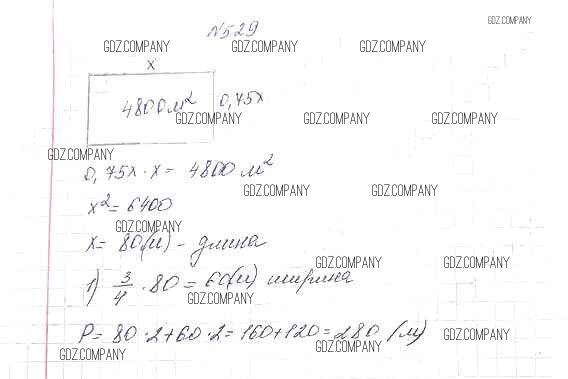 GDZ.COMPANY
№529
GDZ.COMPANY GDZ.COMPANY GDZ.COMPANY
x
4800 м² 0,75x
GDZ.COMPANY GDZ.COMPANY GDZ.COMPANY
GDZ.COMPANY
0,75x · x = 4800 м²
GDZ.COMPANY GDZ.COMPANY
x² = 6400
GDZ.COMPANY
x = 80(м) - длина
GDZ.COMPANY GDZ.COMPANY
1) 3/4 · 80 = 60(м) ширина
GDZ.COMPANY
P = 80 · 2 + 60 · 2 = 160 + 120 = 280 (м)
GDZ.COMPANY
GDZ.COMPANY GDZ.COMPANY